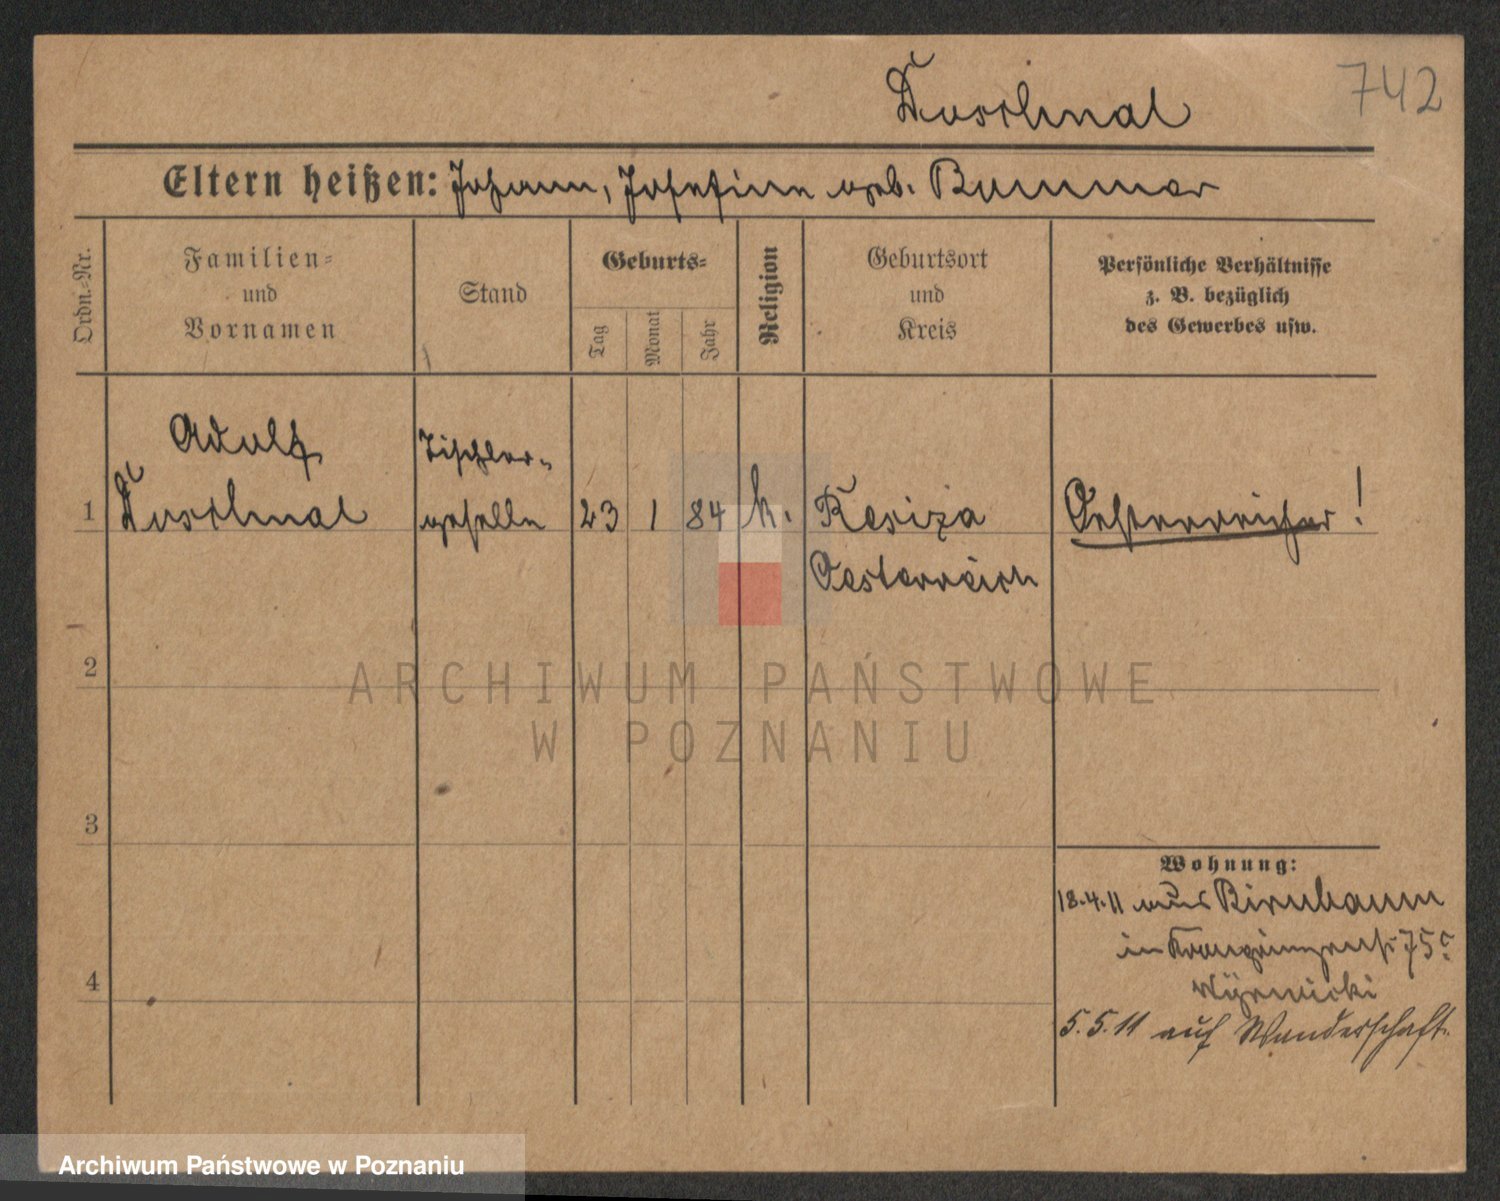 Duschnal
742
Eltern heißen: Johann, Josefine geb. Bummer
Ordn.-Nr.
Familien-
und
Vornamen
Stand
Geburts-
Tag
Monat
Jahr
Religion
Geburtsort
und
Kreis
Persönliche Verhältnisse
z. B. bezüglich
des Gewerbes usw.
Adolf
1 Duschnal
Tischler-
geselle
23 1 84 k. Resiza
Oesterreich
Oesterreicher!
2
3
4
Wohnung:
18.4.11 aus Birnbaum
in 75
5.5.11 auf Wanderschaft.
ARCHIWUM PAŃSTWOWE
W POZNANIU
Archiwum Państwowe w Poznaniu